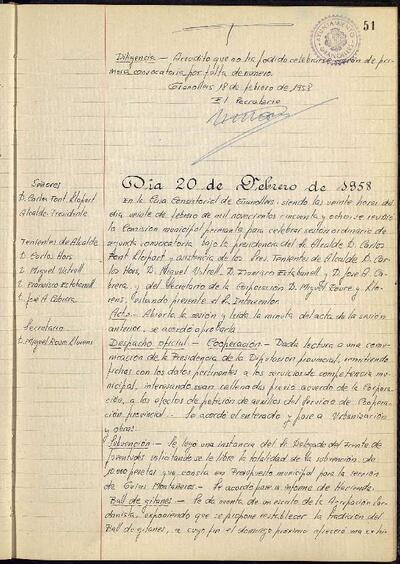 51
AYUNTAMIENTO
GRANOLLERS
Diligencia — Acredito que no ha podido celebrarse sesión de pri-
mera convocatoria por falta de número.
Granollers 18 de febrero de 1958
El Secretario
Día 20 de Febrero de 1958
Señores
D. Carlos Font Llopart
Alcalde-Presidente
Tenientes de Alcalde
D. Carlos Hors
D. Miguel Ustrell
D. Francisco Estabanell
D. José A. Cabrera
Secretario
D. Miguel Roure Llorens
En la Casa Consistorial de Granollers, siendo las veinte horas del
día veinte de febrero de mil novecientos cincuenta y ocho, se reunió
la Comisión municipal permanente para celebrar sesión ordinaria de
segunda convocatoria, bajo la presidencia del Sr. Alcalde D. Carlos
Font Llopart y asistencia de los Sres. Tenientes de Alcalde D. Carlos
Hors, D. Miguel Ustrell, D. Francisco Estabanell y D. José A. Ca-
brera, y del Secretario de la Corporación D. Miguel Roure y Llo-
rens, estando presente el Sr. Interventor.
Acta — Abierta la sesión y leída la minuta del acta de la sesión
anterior, se acordó aprobarla.
Despacho oficial — Cooperación — Dada lectura a una comu-
nicación de la Presidencia de la Diputación provincial, remitiendo
fichas con los datos pertinentes a los servicios de competencia mu-
nicipal, interesando sean rellenadas previo acuerdo de la Corpora-
ción, a los efectos de petición de auxilios del Servicio de Coopera-
ción provincial — Se acordó el enterado y pase a Urbanización
y obras.
Subvención — Se leyó una instancia del Sr. Delegado del Frente de
Juventudes solicitando se le libre la totalidad de la subvención de
10.000 pesetas que consta en Presupuesto municipal para la sección
de Guías Montañeros — Se acordó pase a informe de Hacienda.
Ball de gitanes — Se da cuenta de un escrito de la Agrupación Sar-
danista exponiendo que se propone restablecer la tradición del
Ball de gitanes, a cuyo fin el domingo próximo ofrecerá una exhi-